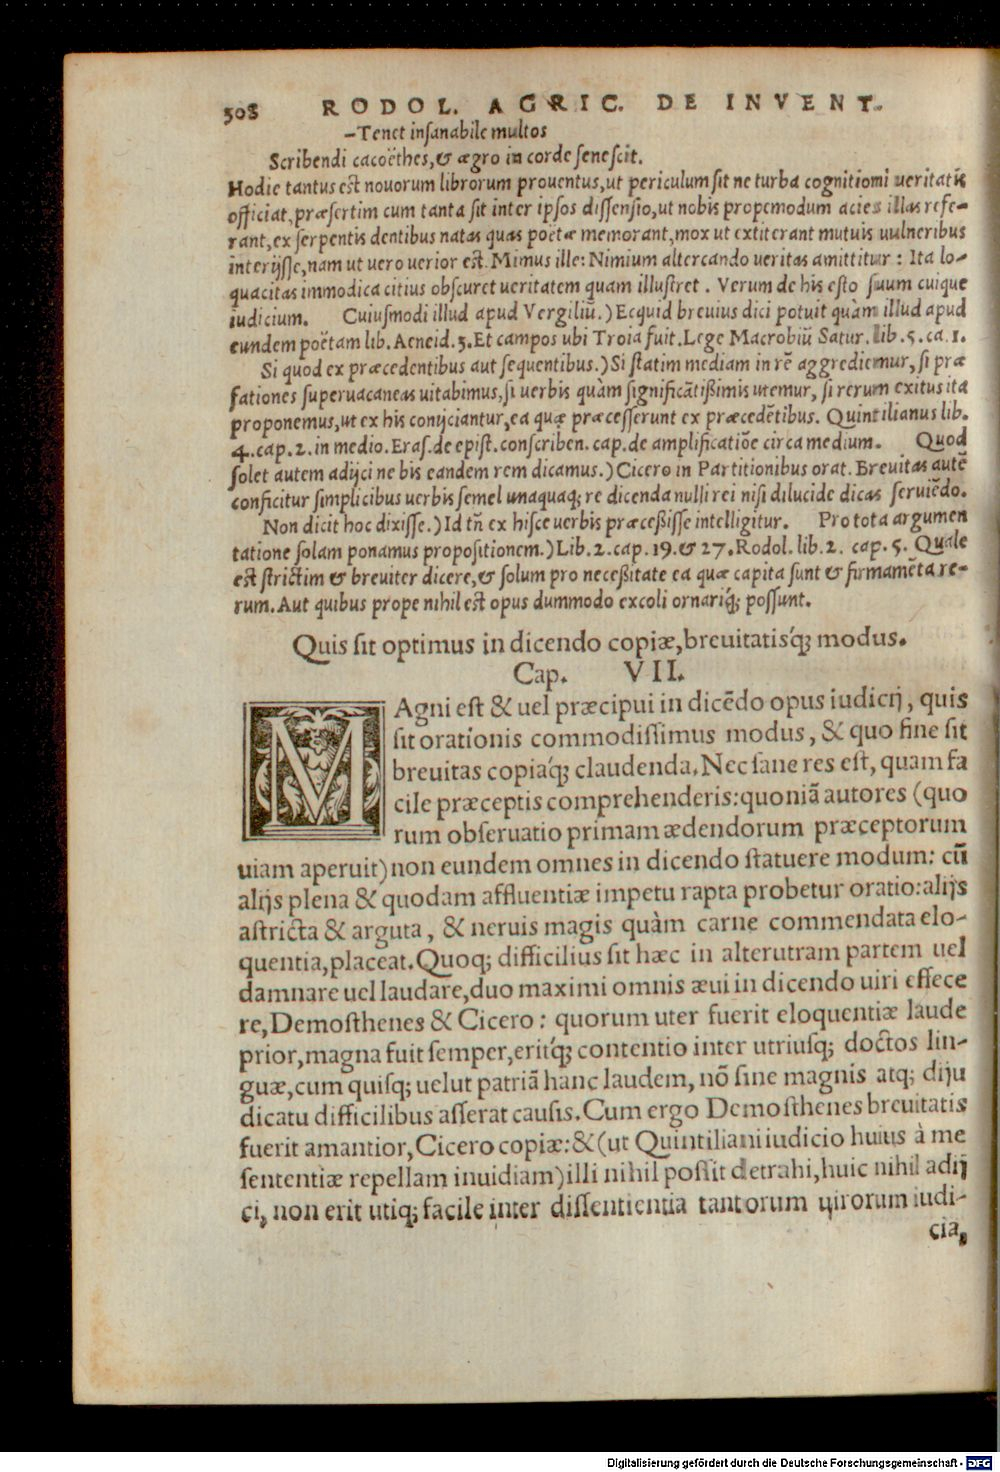 508 RODOL. AGRIC. DE INVENT.
-Tenet insanabile multos
Scribendi cacoëthes, & ægro in corde senescit.
Hodie tantus est nouorum librorum prouentus, ut periculum sit ne turba cognitioni ueritatis
officiat, præsertim cum tanta sit inter ipsos dissensio, ut nobis propemodum acies illas refe-
rant, ex serpentis dentibus natas quas poëtæ memorant, mox ut extiterant mutuis uulneribus
interijsse, nam ut uero uerior est. Mimus ille: Nimium altercando ueritas amittitur: Ita lo-
quacitas immodica citius obscuret ueritatem quam illustret. Verum de his esto suum cuique
iudicium. Cuiusmodi illud apud Vergiliũ.) Ecquid breuius dici potuit quàm illud apud
eundem poëtam lib. Aeneid. 3. Et campos ubi Troia fuit. Lege Macrobiũ Satur. lib. 5. ca. 1.
Si quod ex præcedentibus aut sequentibus.) Si statim mediam in rẽ aggrediemur, si præ
fationes superuacaneas uitabimus, si uerbis quàm significãtißimis utemur, si rerum exitus ita
proponemus, ut ex his conijciantur, ea quæ præcesserunt ex præcedẽtibus. Quintilianus lib.
4. cap. 2. in medio. Eras. de epist. conscriben. cap. de amplificatiõe circa medium. Quod
solet autem adijci ne bis eandem rem dicamus.) Cicero in Partitionibus orat. Breuitas autẽ
conficitur simplicibus uerbis semel unaquaq; re dicenda nulli rei nisi dilucide dicas seruiẽdo.
Non dicit hoc dixisse.) Id tñ ex hisce uerbis præceßisse intelligitur. Pro tota argumen
tatione solam ponamus propositionem.) Lib. 2. cap. 19. & 27. Rodol. lib. 2. cap. 5. Quale
est strictim & breuiter dicere, & solum pro neceßitate ea quæ capita sunt & firmamẽta re-
rum. Aut quibus prope nihil est opus dummodo excoli ornariq́; possunt.
Quis sit optimus in dicendo copiæ, breuitatisq́; modus.
Cap. VII.
MAgni est & uel præcipui in dicẽdo opus iudicij, quis
sit orationis commodissimus modus, & quo fine sit
breuitas copiaq́; claudenda. Nec sane res est, quam fa
cile præceptis comprehenderis: quoniã autores (quo
rum obseruatio primam ædendorum præceptorum
uiam aperuit) non eundem omnes in dicendo statuere modum: cũ
alijs plena & quodam affluentiæ impetu rapta probetur oratio: alijs
astricta & arguta, & neruis magis quàm carne commendata elo-
quentia, placeat. Quoq; difficilius sit hæc in alterutram partem uel
damnare uel laudare, duo maximi omnis æui in dicendo uiri effece
re, Demosthenes & Cicero: quorum uter fuerit eloquentiæ laude
prior, magna fuit semper, eritq́; contentio inter utriusq; doctos lin-
guæ, cum quisq; uelut patriã hanc laudem, nõ sine magnis atq; diju
dicatu difficilibus asserat causis. Cum ergo Demosthenes breuitatis
fuerit amantior, Cicero copiæ: & (ut Quintiliani iudicio huius à me
sententiæ repellam inuidiam) illi nihil possit detrahi, huic nihil adij
ci, non erit utiq; facile inter dissentientia tantorum uirorum iudi-
cia,
Digitalisierung gefördert durch die Deutsche Forschungsgemeinschaft - DFG